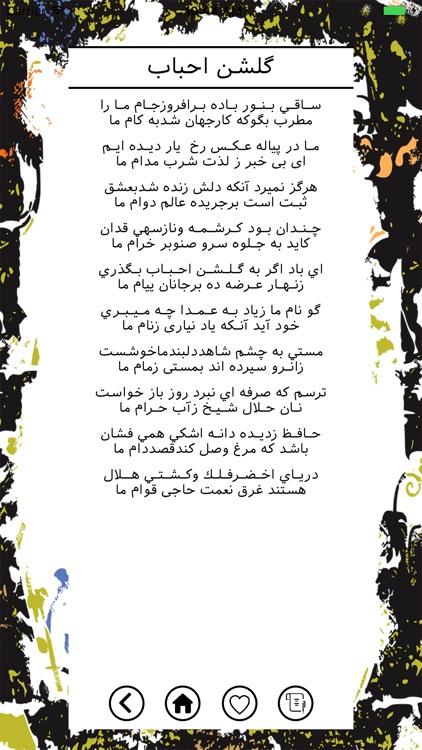 گلشن احباب
ساقي بنور باده برافروزجام ما را
مطرب بگوكه كارجهان شدبه كام ما
ما در پياله عكس رخ يار ديده ايم
ای بی خبر ز لذت شرب مدام ما
هرگز نميرد آنكه دلش زنده شدبعشق
ثبت است برجريده عالم دوام ما
چندان بود كرشمه ونازسهي قدان
كايد به جلوه سرو صنوبر خرام ما
اي باد اگر به گلشن احباب بگذري
زنهار عرضه ده برجانان پيام ما
گو نام ما زياد به عمدا چه ميبري
خود آيد آنكه ياد نياری زنام ما
مستي به چشم شاهددلبندماخوشست
زانرو سپرده اند بمستی زمام ما
ترسم كه صرفه اي نبرد روز باز خواست
نان حلال شيخ زآب حرام ما
حافظ زديده دانه اشكي همي فشان
باشد كه مرغ وصل كندقصددام ما
درياي اخضرفلك وكشتي هلال
هستند غرق نعمت حاجی قوام ما